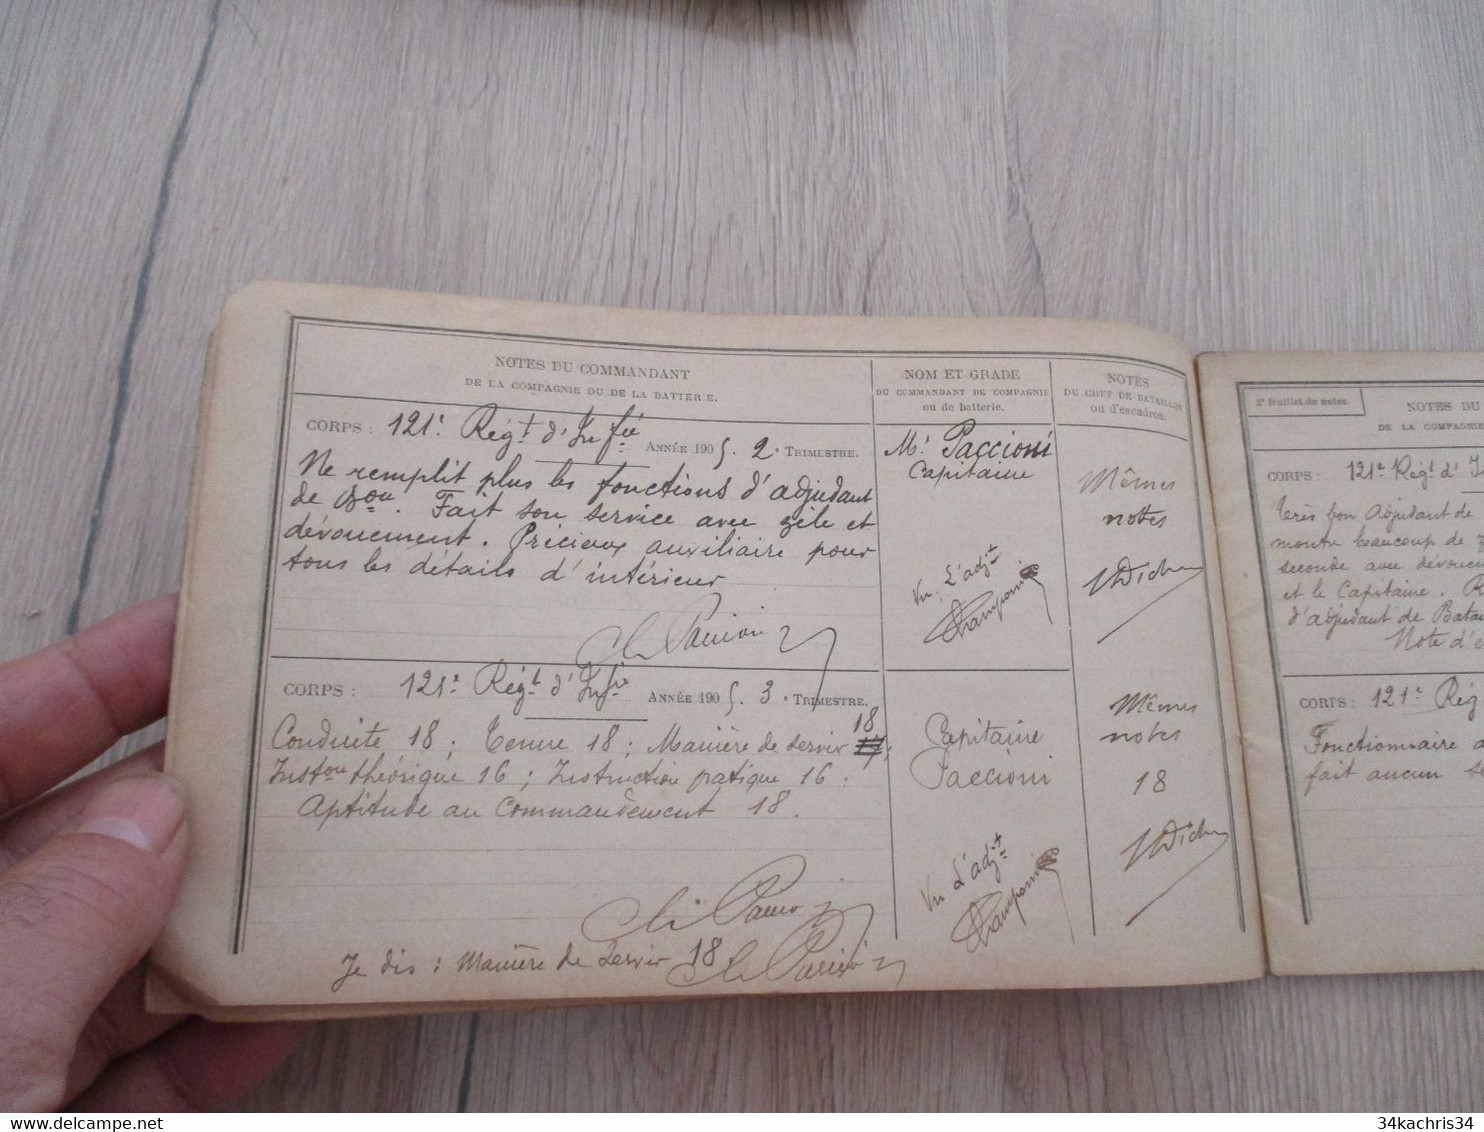 NOTES DU COMMANDANT
DE LA COMPAGNIE OU DE LA BATTERIE.
NOM ET GRADE
DU COMMANDANT DE COMPAGNIE
ou de batterie.
NOTES
DU CHEF DE BATAILLON
ou d'escadron.
CORPS : 121e Régt d'Infie ANNÉE 1905. 2e TRIMESTRE.
Ne remplit plus les fonctions d'adjudant
de Bon. Fait son service avec zèle et
dévouement. Précieux auxiliaire pour
tous les détails d'intérieur
Mr Paccioni
Capitaine
Vu. L'adjt
Champonnier
Mêmes
notes
CORPS : 121e Régt d'Infie ANNÉE 1905. 3e TRIMESTRE.
Conduite 18 ; Tenue 18 ; Manière de servir 18 17 ;
Inston théorique 16 ; Instruction pratique 16.
Aptitude au Commandement 18.
Capitaine
Paccioni
Vu L'adjt
Champonnier
Mêmes
notes
18
Je dis : Manière de servir 18
2e feuillet de notes.
NOTES DU
DE LA COMPAGNIE
CORPS : 121e Régt d'I
Très bon adjudant de
montre beaucoup de z
seconde avec dévouem
et le Capitaine. R
d'adjudant de Batai
Note d'e
CORPS : 121e Rég
Fonctionnaire a
fait aucun se
34kachris34
delcampe.net
34kachris34